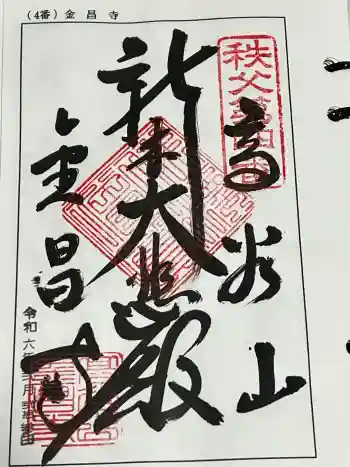 （4番）金昌寺
秩父第四番
高谷山
新木大悲殿
金昌寺
令和六年